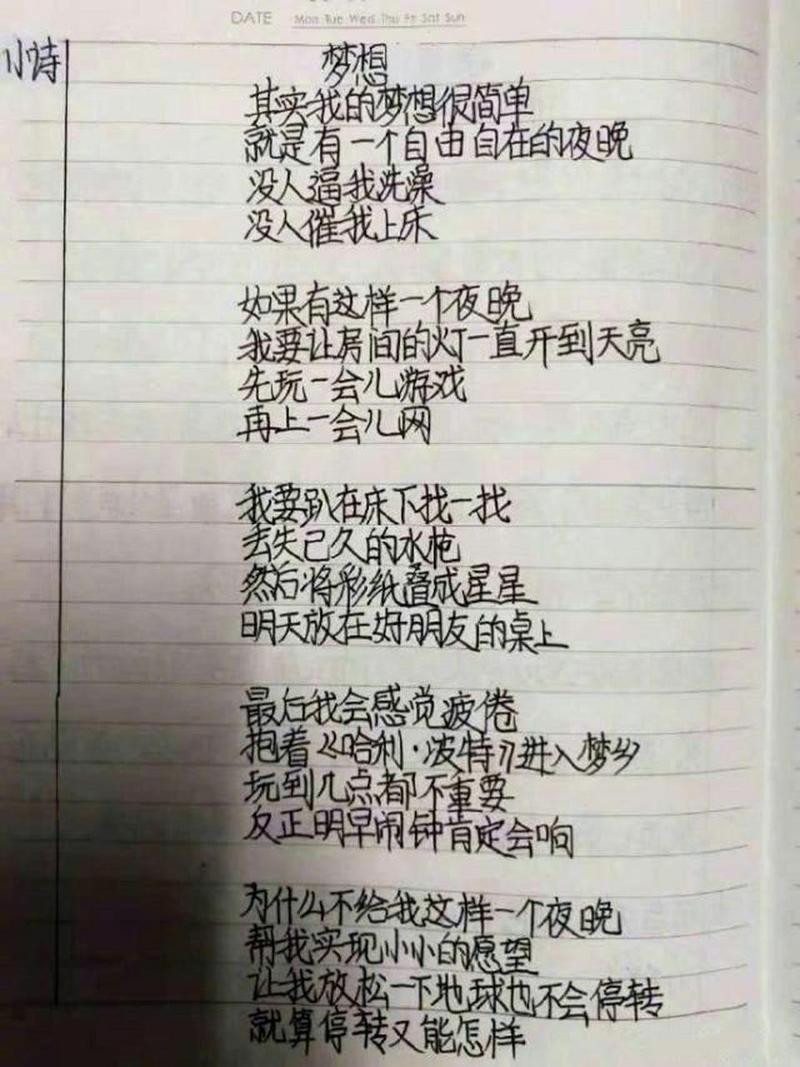 DATE Mon Tue Wed Thu Fri Sat Sun
小诗
梦想
其实我的梦想很简单
就是有一个自由自在的夜晚
没人逼我洗澡
没人催我上床
如果有这样一个夜晚
我要让房间的灯一直开到天亮
先玩一会儿游戏
再上一会儿网
我要趴在床下找一找
丢失已久的水枪
然后将彩纸叠成星星
明天放在好朋友的桌上
最后我会感觉疲倦
抱着《哈利·波特》进入梦乡
玩到几点都不重要
反正明早闹钟肯定会响
为什么不给我这样一个夜晚
帮我实现小小的愿望
让我放松一下地球也不会停转
就算停转又能怎样